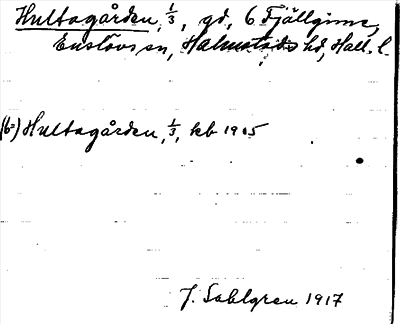 Hultagården, 1/3, gd, 6 Fjällginne,
Enslövs sn, Halmstads hd, Hall. l.
(b=) Hultagården, 1/3, kb 1905
J. Sahlgren 1917